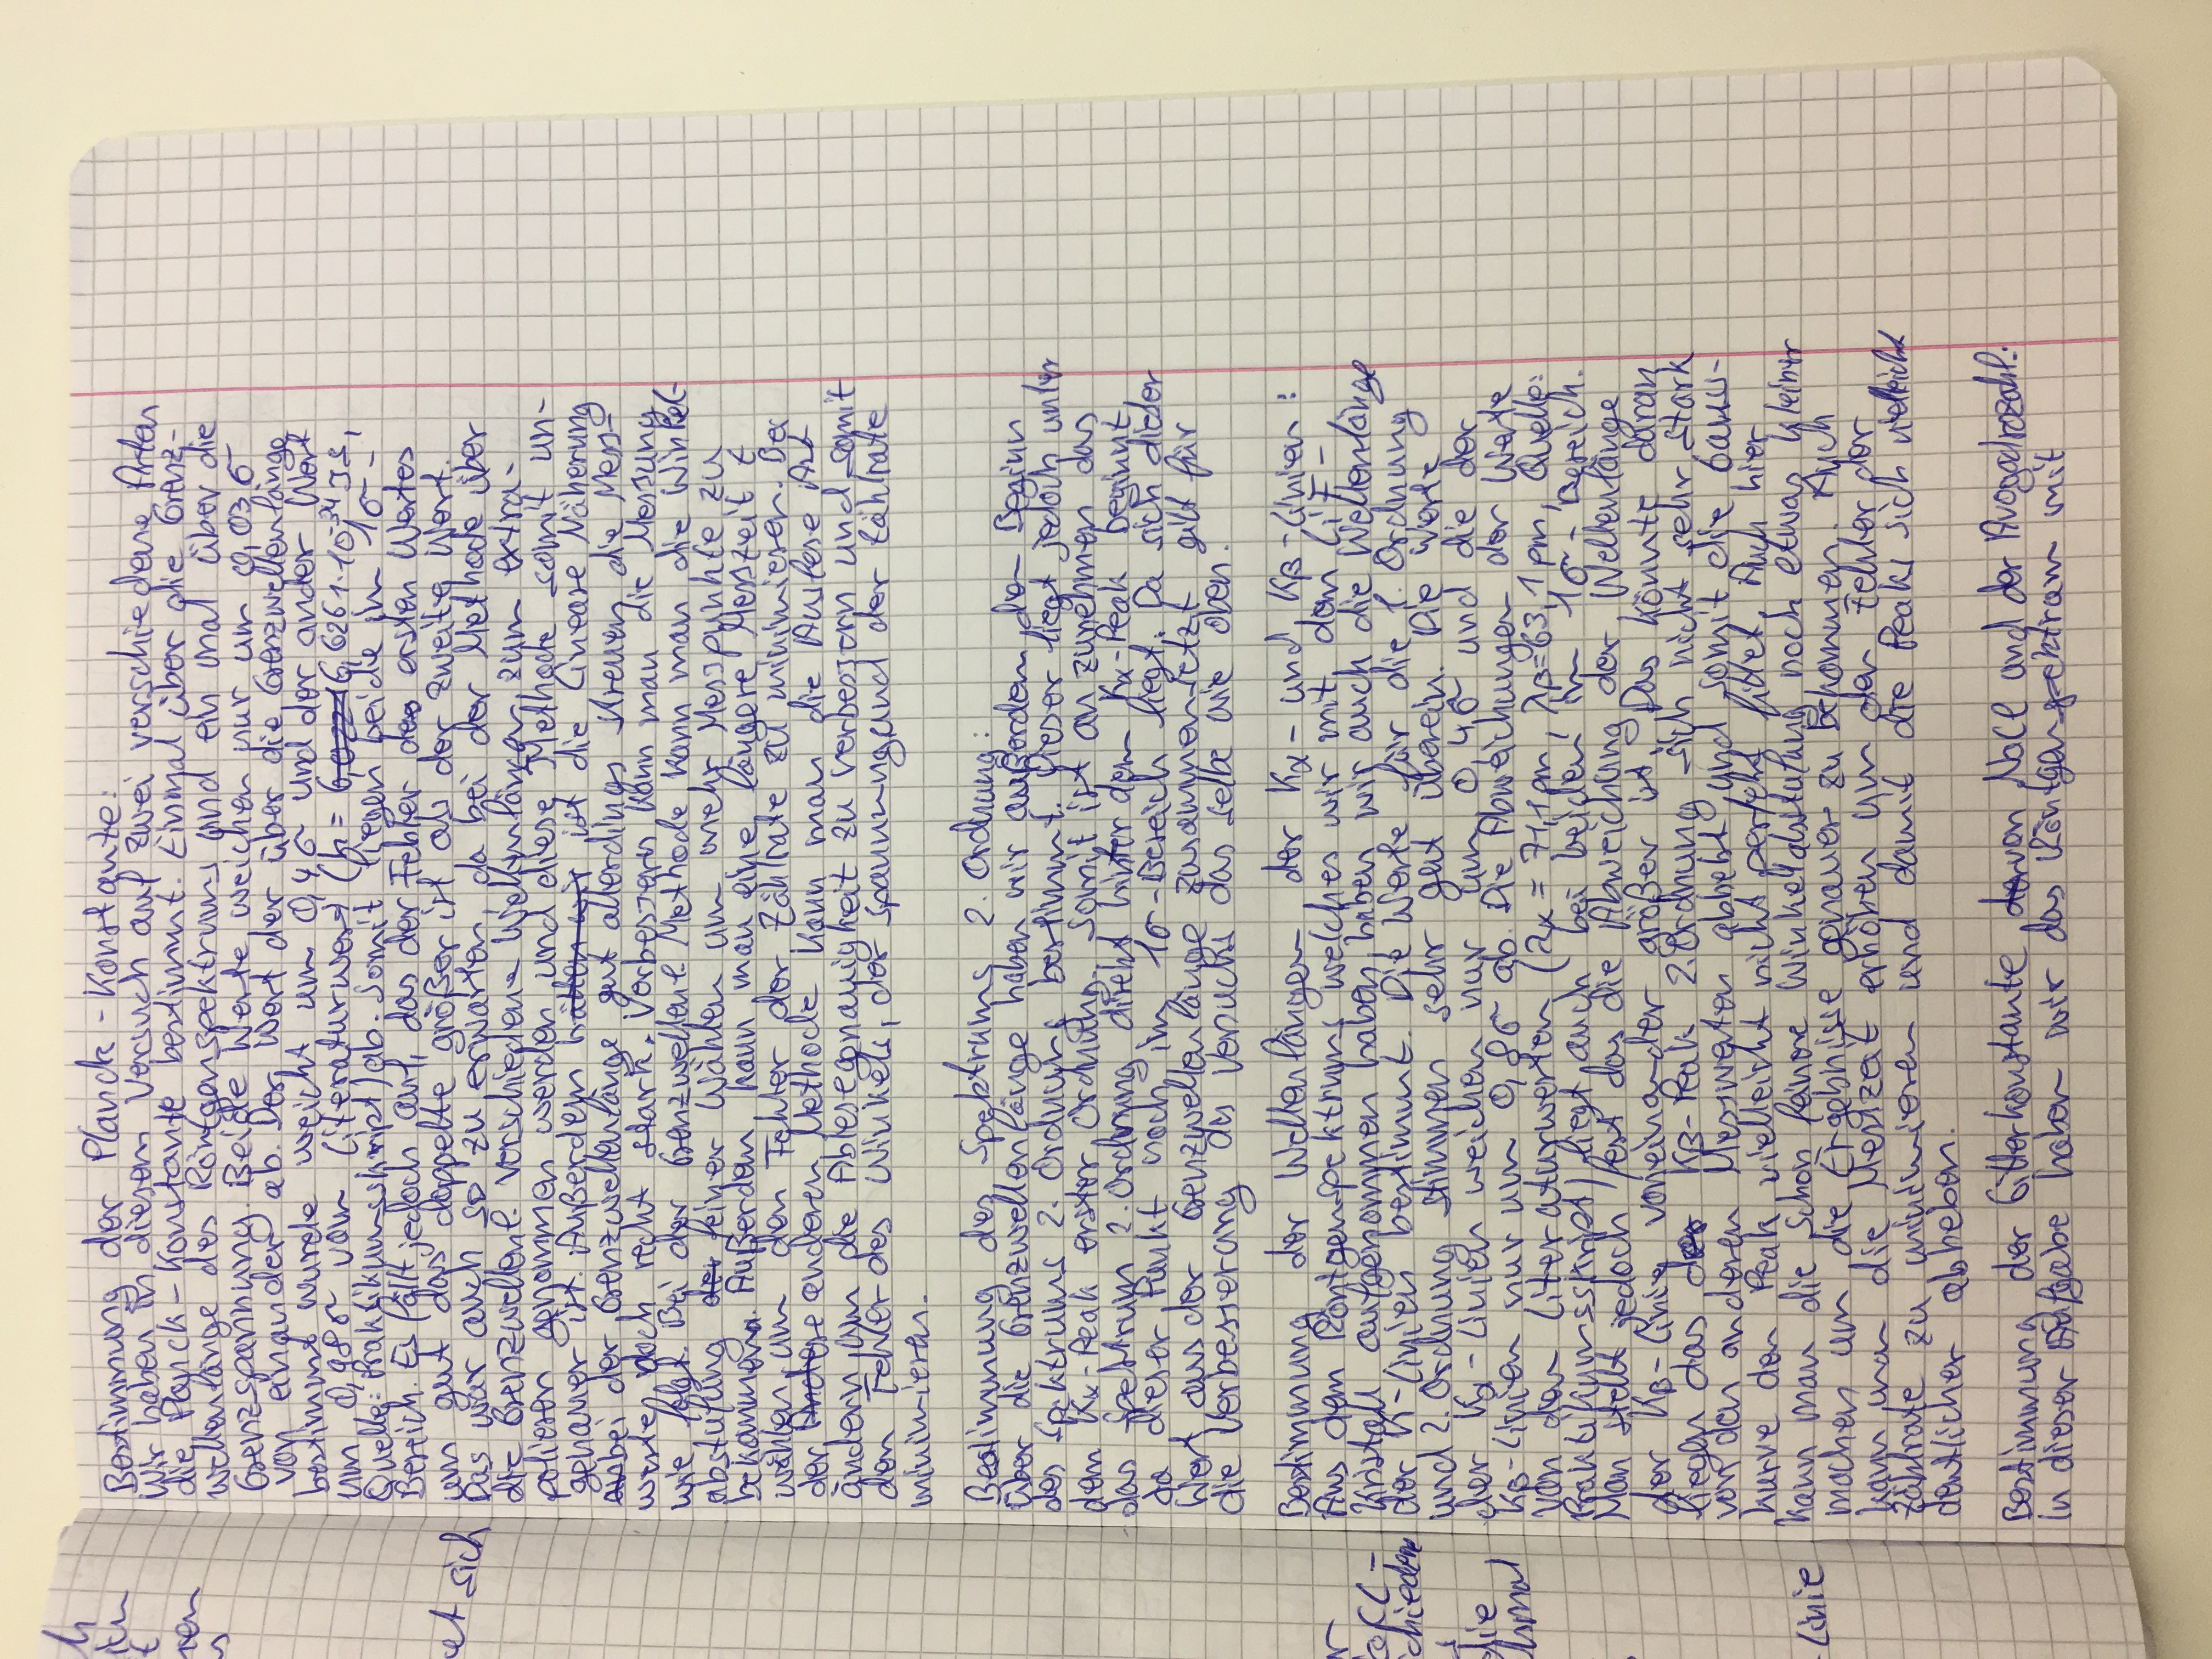 Bestimmung der Planck-Konstante:
Wir haben in diesem Versuch auf zwei verschiedene Arten
die Planck-Konstante bestimmt. Einmal über die Grenz-
wellenlänge des Röntgenspektrums und ein mal über die
Grenzspannung. Beide Werte weichen nur um 0,03σ
von einander ab. Der Wert der über die Grenzwellenlänge
bestimmt wurde weicht um 0,4σ und der ander Wert
um 0,98σ vom Literaturwert (h = 6,6261·10⁻³⁴ Js,
Quelle: Praktikumsskript) ab. Somit liegen beide im 1σ-
Bereich. Es fällt jedoch auf, das der Fehler des ersten Wertes
um gut das doppelte größer ist als der zweite Wert.
Das war auch so zu erwarten, da bei der Methode über
die Grenzwellenl. verschiedene Wellenlängen zum extra-
polieren genommen werden und diese Methode somit un-
genauer ist. Außerdem hätten wir ist die lineare Näherung
bei der Grenzwellenlänge gut allerdings streuen die Mess-
werte noch recht stark. Verbessern kann man die Messung
wie folgt. Bei der Grenzwellenl. Methode kann man die Winkel-
abstufung der feiner wählen um mehr Messpunkte zu
bekommen. Außerdem kann man eine längere Messzeit t
wählen um den Fehler der Zählrate zu minimieren. Bei
der Andere anderen Methode kann man die Auslese Art
ändern um die Ablesegenauigkeit zu verbessern und somit
den Fehler des Winkels, der Spannung und der Zählrate
minimieren.
Bestimmung des Spektrums 2. Ordnung:
Über die Grenzwellenlänge haben wir außerdem den Beginn
des Spektrums 2. Ordnung bestimmt. Dieser liegt jedoch unter
dem Kα-Peak erster Ordnung. Somit ist an zunehmen das
das Spektrum 2. Ordnung direkt hinter dem Kα-Peak beginnt,
da dieser Punkt noch im 1σ-Bereich liegt. Da sich dieser
Wert aus der Grenzwellenlänge zusammensetzt gilt für
die Verbesserung des Versuchs das selbe wie oben.
Bestimmung der Wellenlängen der Kα- und Kβ-Linien:
Aus dem Röntgenspektrums welches wir mit dem LiF-
Kristall aufgenommen haben, haben wir auch die Wellenlänge
der K-Linien bestimmt. Die Werte für die 1. Ordnung
und 2. Ordnung stimmen sehr gut überein. Die Werte
der Kα-Linien weichen nur um 0,4σ und die der
Kβ-Linien nur um 0,8σ ab. Die Abweichungen der Werte
von den Literaturwerten (λα = 71,1 pm, λβ = 63,1 pm, Quelle:
Praktikumsskript) liegt auch bei beiden im 1σ-Bereich.
Man stellt jedoch fest das die Abweichung der Wellenlänge
der Kβ-Linie voneinander größer ist. Das könnte daran
liegen das der Kβ-Peak 2. Ordnung sich nicht sehr stark
von den anderen Messwerten abhebt und somit die Gauss-
kurve den Peak vielleicht nicht perfekt fittet. Auch hier
kann man die schon feinere Winkelabstufung noch etwas kleiner
machen um die Ergebnisse genauer zu bekommen. Auch
kann man die Messzeit erhöhen um den Fehler der
Zählrate zu minimieren und damit die Peaks sich vielleicht
deutlicher abheben.
Bestimmung der Gitterkonstante von NaCl und der Avogadrozahl:
In dieser Aufgabe haben wir das Röntgenspektrum mit
et sich
schiedene
die
-Linie